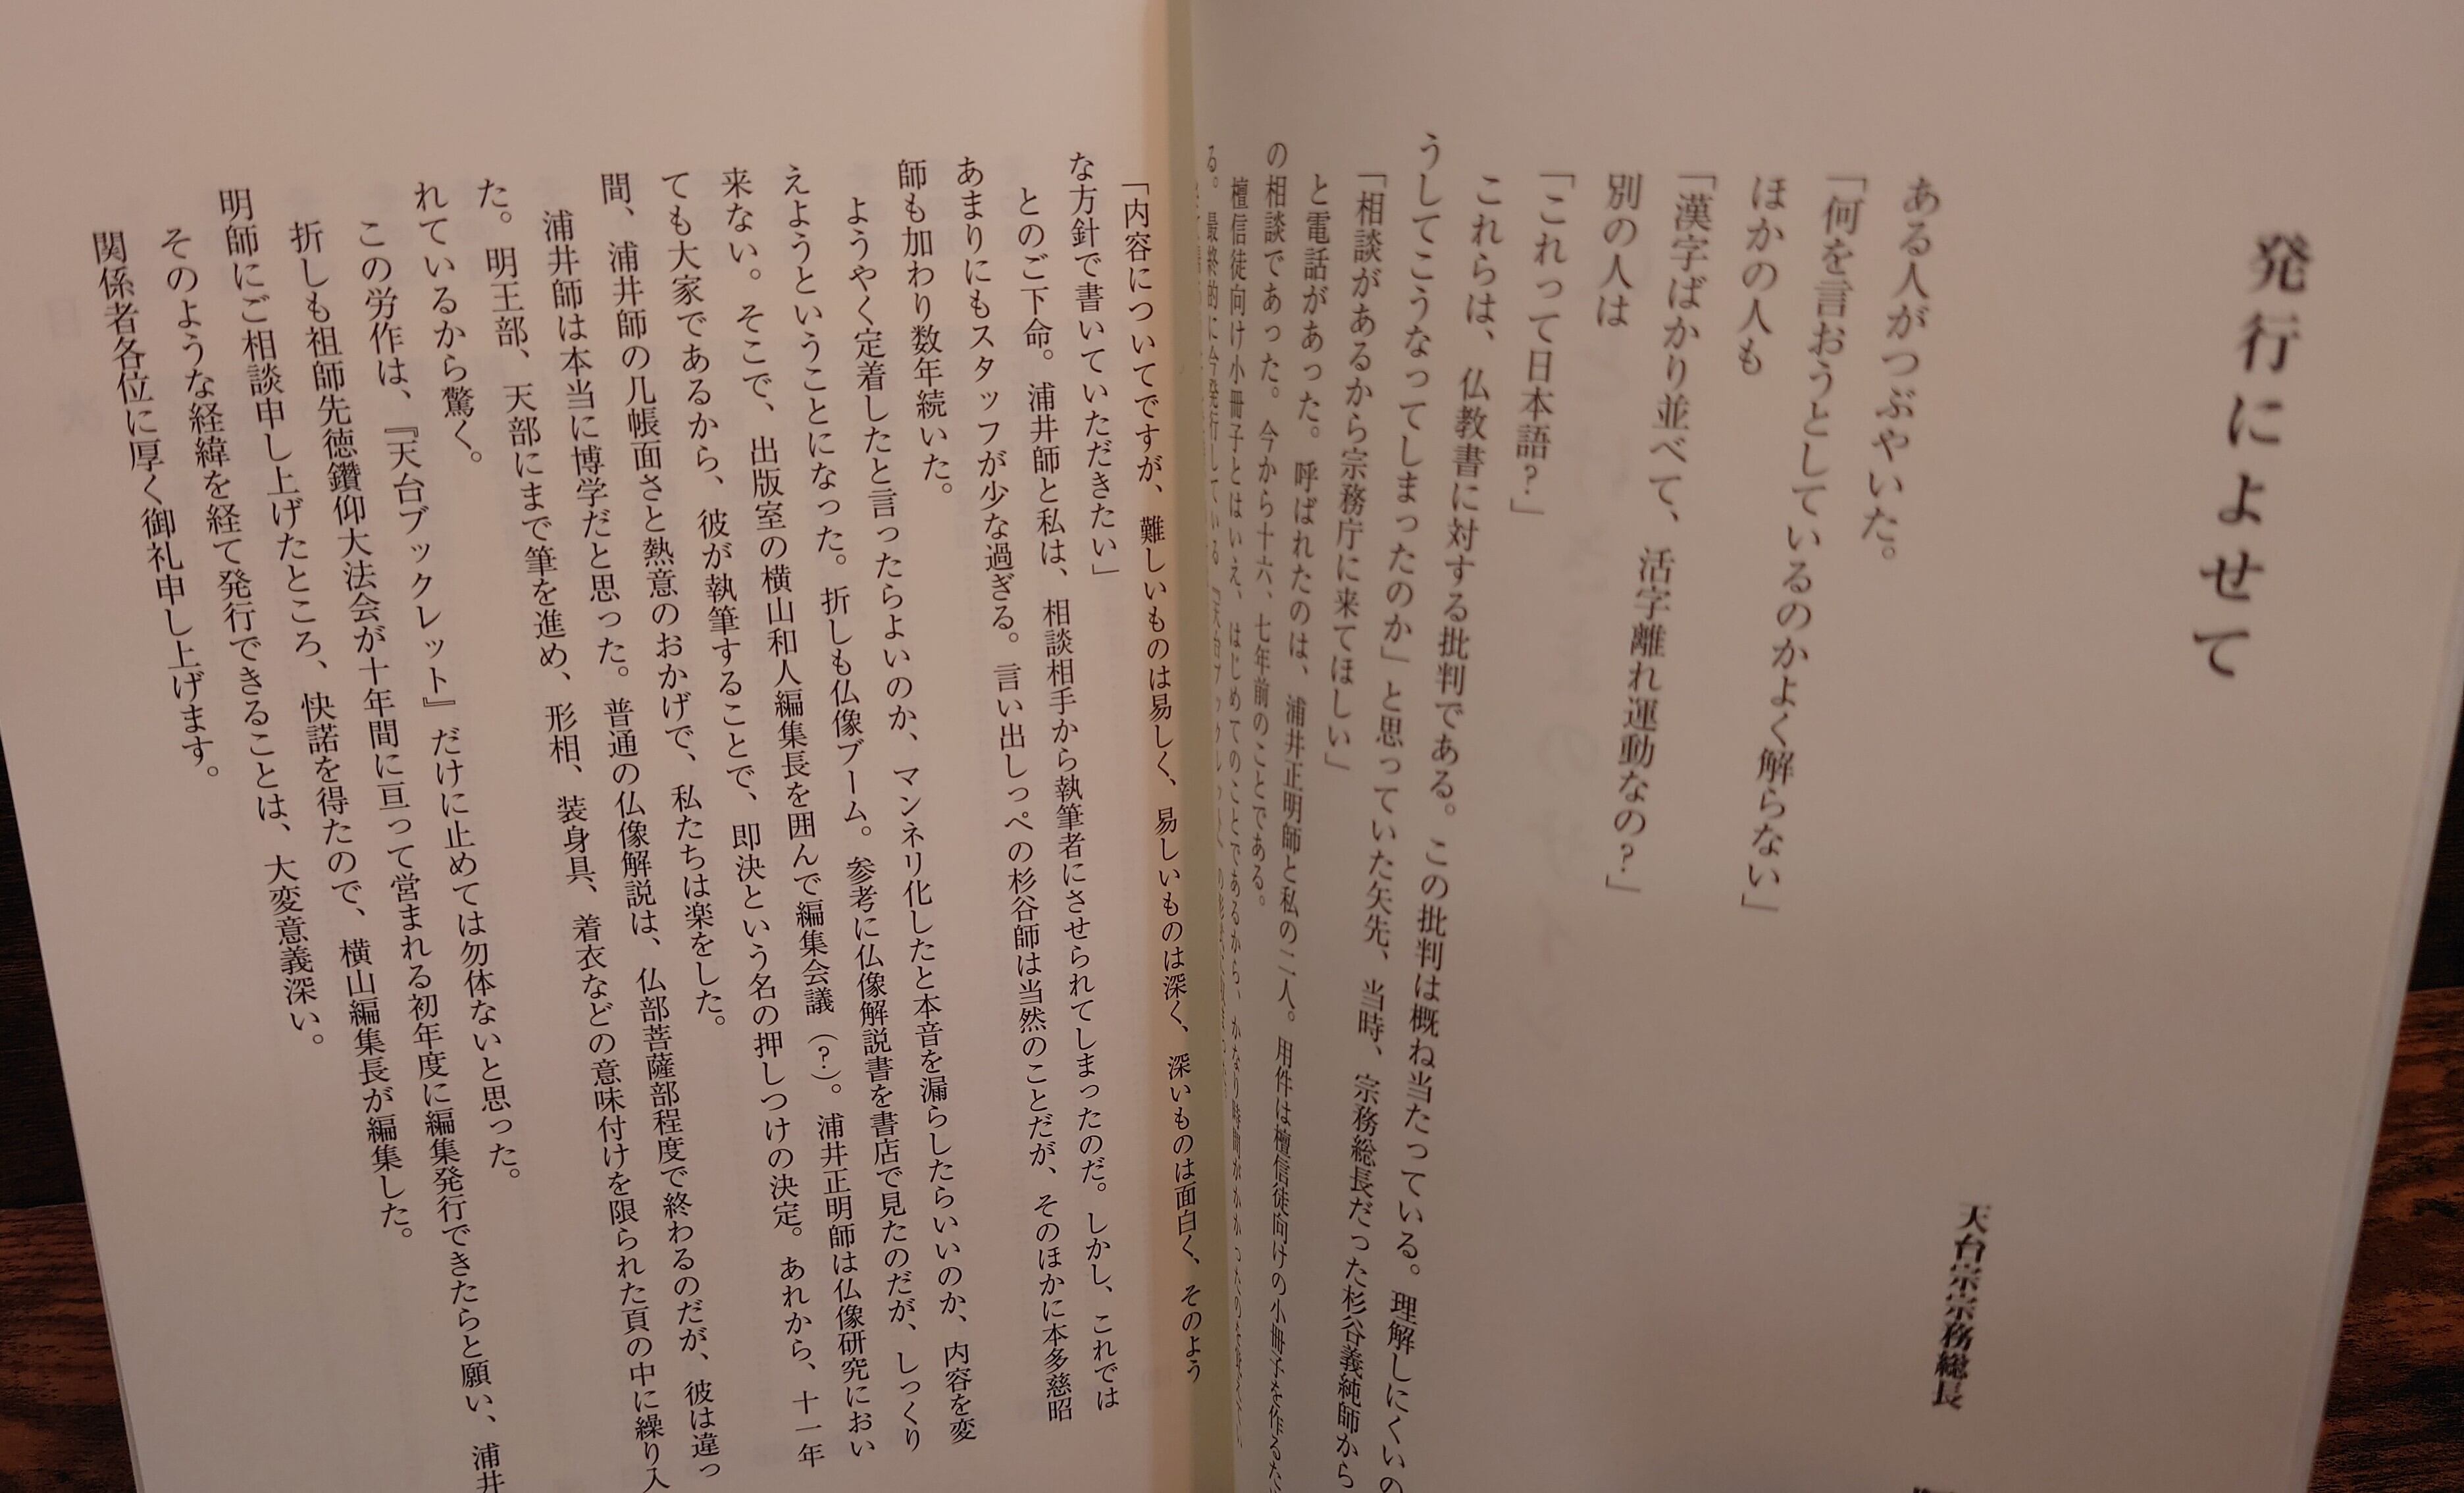 発行によせて
天台宗宗務総長
ある人がつぶやいた。
「何を言おうとしているのかよく解らない」
ほかの人も
「漢字ばかり並べて、活字離れ運動なの？」
別の人は
「これって日本語？」
これらは、仏教書に対する批判である。この批判は概ね当たっている。理解しにくいの
うしてこうなってしまったのか」と思っていた矢先、当時、宗務総長だった杉谷義純師から
「相談があるから宗務庁に来てほしい」
と電話があった。呼ばれたのは、浦井正明師と私の二人。用件は檀信徒向けの小冊子を作るた
の相談であった。今から十六、七年前のことである。
檀信徒向け小冊子とはいえ、はじめてのことであるから、かなり時間がかかったのを覚えてい
る。最終的に今発行している『天台ブックレット』の
「内容についてですが、難しいものは易しく、易しいものは深く、深いものは面白く、そのよう
な方針で書いていただきたい」
とのご下命。浦井師と私は、相談相手から執筆者にさせられてしまったのだ。しかし、これでは
あまりにもスタッフが少な過ぎる。言い出しっぺの杉谷師は当然のことだが、そのほかに本多慈昭
師も加わり数年続いた。
ようやく定着したと言ったらよいのか、マンネリ化したと本音を漏らしたらいいのか、内容を変
えようということになった。折しも仏像ブーム。参考に仏像解説書を書店で見たのだが、しっくり
来ない。そこで、出版室の横山和人編集長を囲んで編集会議（？）。浦井正明師は仏像研究におい
ても大家であるから、彼が執筆することで、即決という名の押しつけの決定。あれから、十一年
間、浦井師の几帳面さと熱意のおかげで、私たちは楽をした。
浦井師は本当に博学だと思った。普通の仏像解説は、仏部菩薩部程度で終わるのだが、彼は違っ
た。明王部、天部にまで筆を進め、形相、装身具、着衣などの意味付けを限られた頁の中に繰り入
れているから驚く。
この労作は、『天台ブックレット』だけに止めては勿体ないと思った。
折しも祖師先徳鑽仰大法会が十年間に亘って営まれる初年度に編集発行できたらと願い、浦井
明師にご相談申し上げたところ、快諾を得たので、横山編集長が編集した。
そのような経緯を経て発行できることは、大変意義深い。
関係者各位に厚く御礼申し上げます。